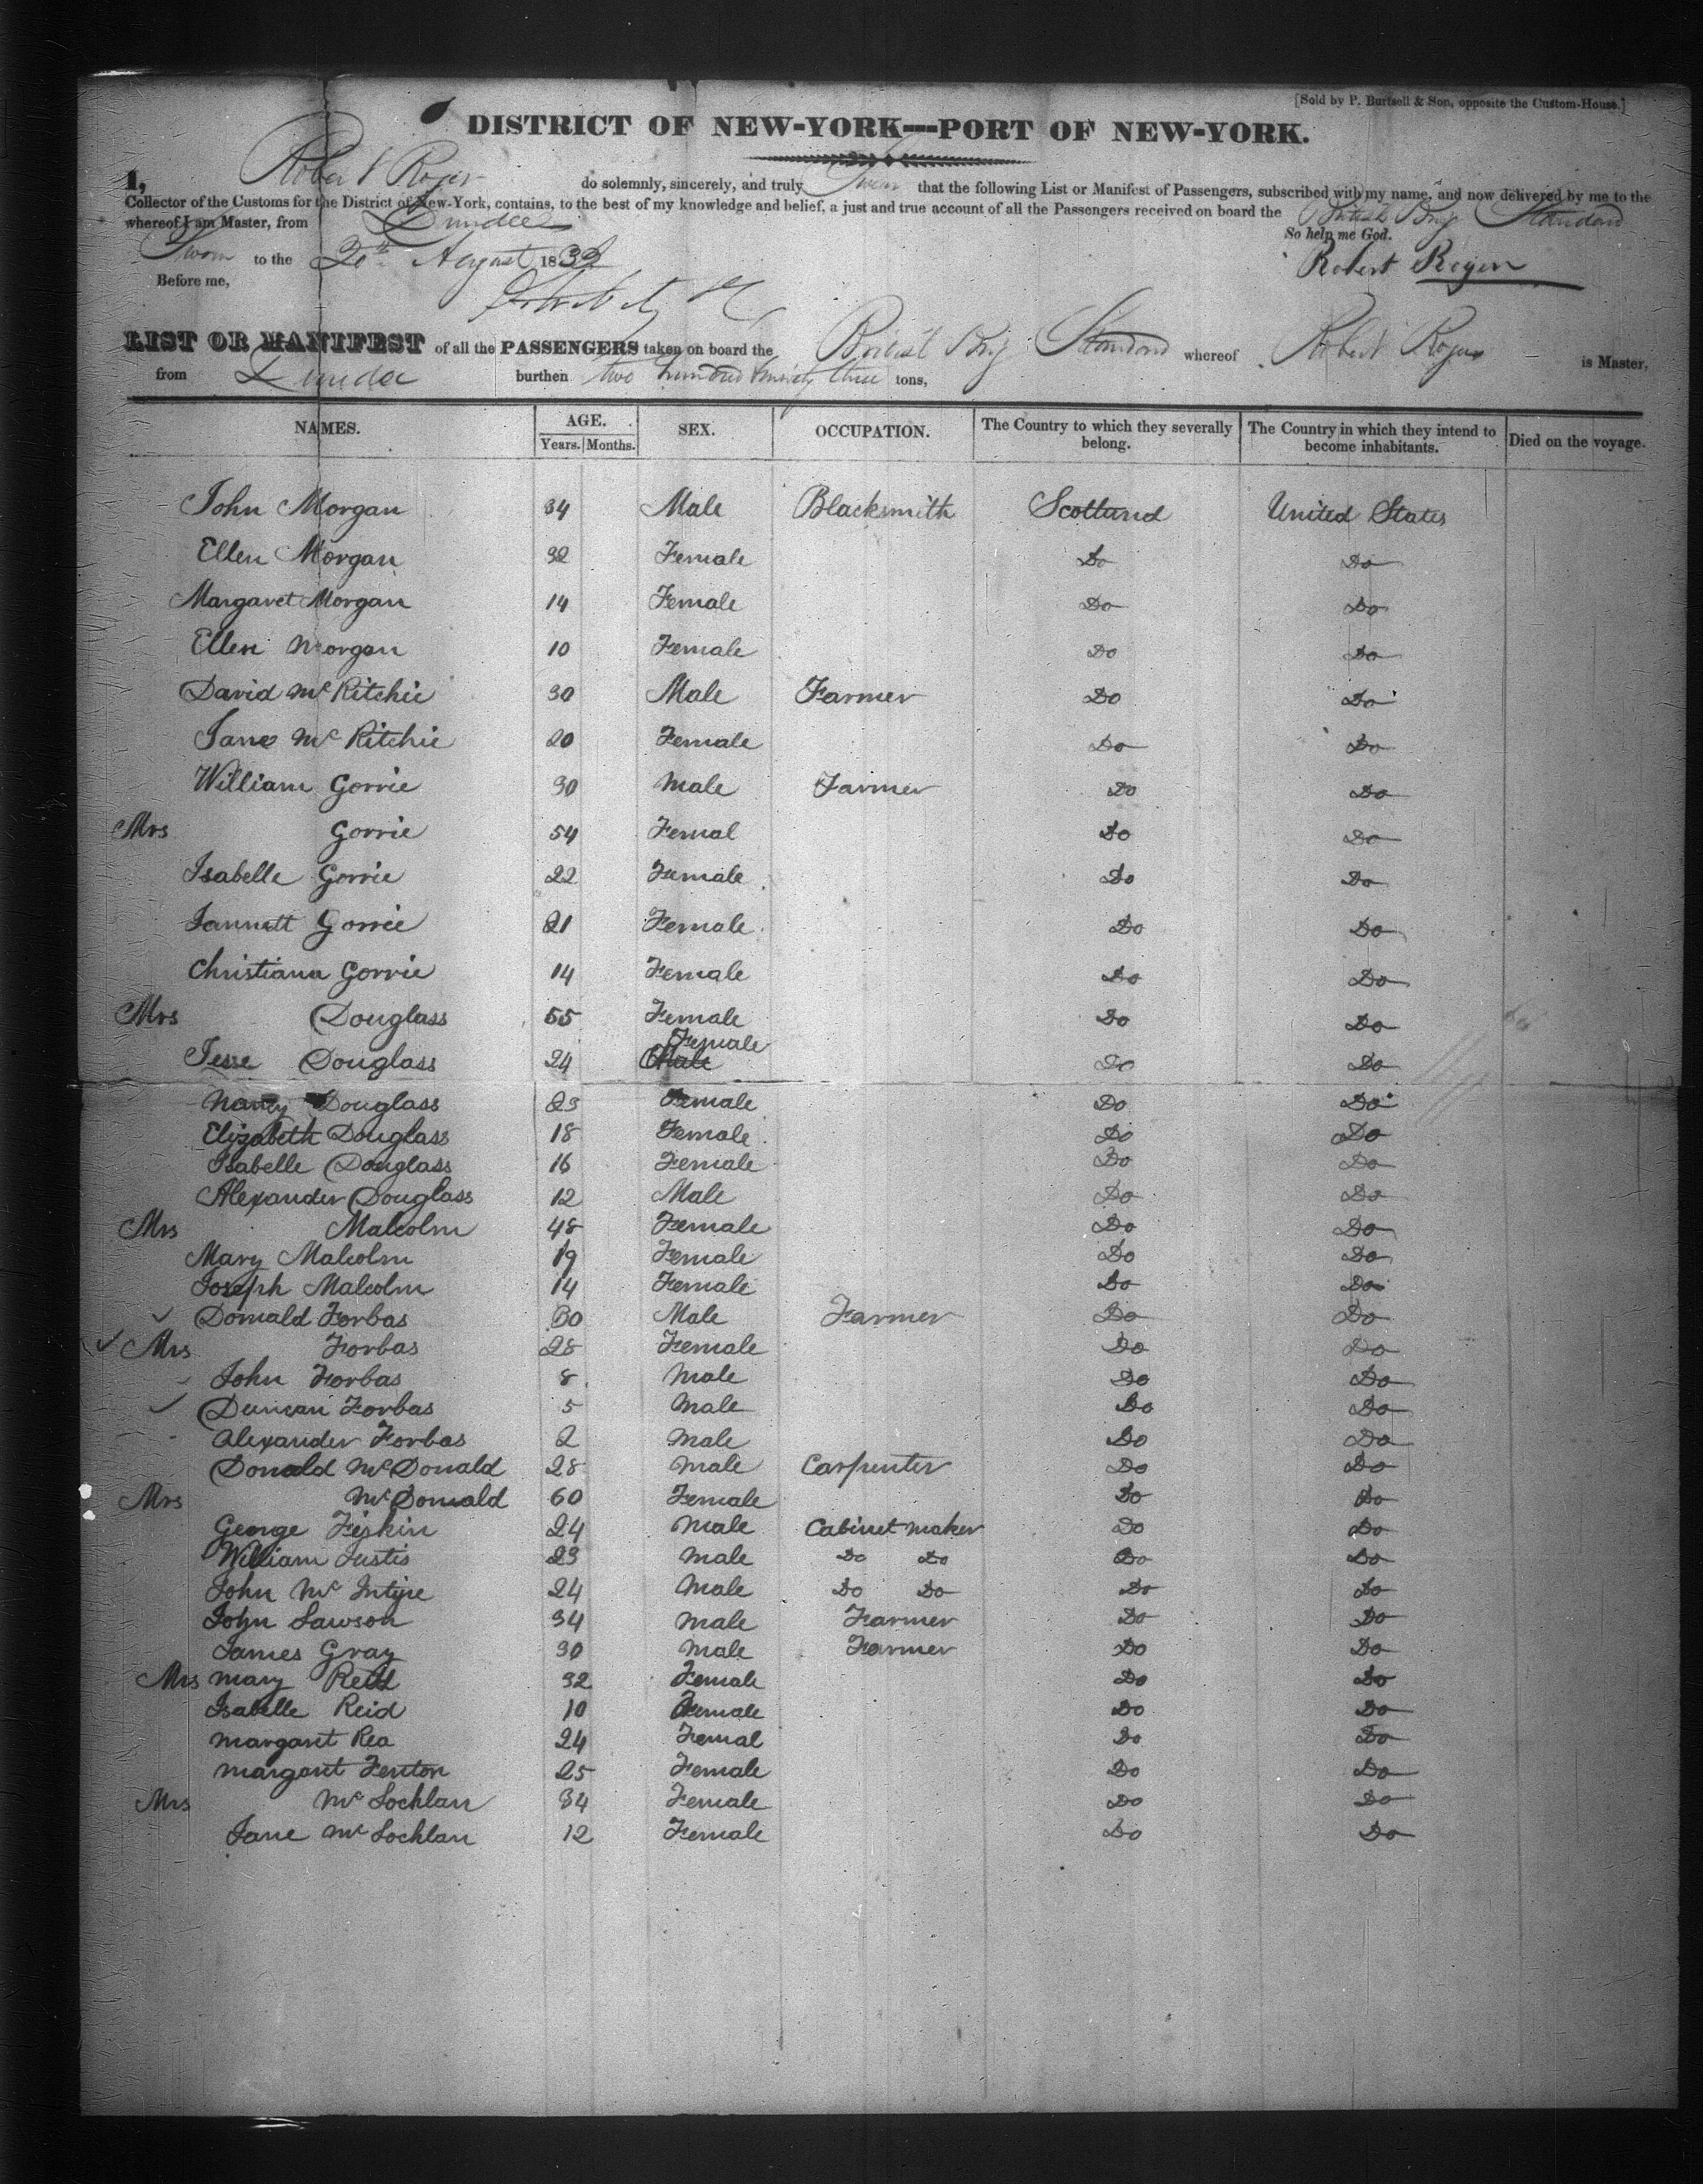 [Sold by P. Burtsell & Son, opposite the Custom-House.]
DISTRICT OF NEW-YORK—PORT OF NEW-YORK.
I, Robert Roger do solemnly, sincerely, and truly Swear that the following List or Manifest of Passengers, subscribed with my name, and now delivered by me to the
Collector of the Customs for the District of New-York, contains, to the best of my knowledge and belief, a just and true account of all the Passengers received on board the British Brig Standard
whereof I am Master, from Dundee
So help me God.
Sworn to the 20th August 183
Robert Roger
Before me,
LIST OR MANIFEST of all the PASSENGERS taken on board the British Brig Standard whereof Robert Roger is Master,
from Dundee burthen two hundred three tons,
NAMES. AGE. SEX. OCCUPATION. The Country to which they severally belong. The Country in which they intend to become inhabitants. Died on the voyage.
Years. Months.
John Morgan 34 Male Blacksmith Scotland United States
Ellen Morgan 32 Female Do Do
Margaret Morgan 14 Female Do Do
Ellen Morgan 10 Female Do Do
David McRitchie 30 Male Farmer Do Do
Jane McRitchie 20 Female Do Do
William Gorrie 30 Male Farmer Do Do
Mrs Gorrie 54 Femal Do Do
Isabelle Gorrie 22 Female Do Do
Jannett Gorrie 21 Female Do Do
Christiana Gorrie 14 Female Do Do
Mrs Douglass 55 Female Do Do
Jesse Douglass 24 Male Female Do Do
Nancy Douglass 23 Female Do Do
Elizabeth Douglass 18 Female Do Do
Isabelle Douglass 16 Female Do Do
Alexander Douglass 12 Male Do Do
Mrs Malcolm 48 Female Do Do
Mary Malcolm 19 Female Do Do
Joseph Malcolm 14 Female Do Do
Donald Forbas 30 Male Farmer Do Do
Mrs Forbas 28 Female Do Do
John Forbas 8 Male Do Do
Duncan Forbas 5 Male Do Do
Alexander Forbas 2 Male Do Do
Donald McDonald 28 Male Carpenter Do Do
Mrs McDonald 60 Female Do Do
George Fiskin 24 Male Cabinet maker Do Do
William Justis 23 Male Do Do Do Do
John McIntyre 24 Male Do Do Do Do
John Lawson 34 Male Farmer Do Do
James Gray 30 Male Farmer Do Do
Mrs Mary Reid 32 Female Do Do
Isabelle Reid 10 Female Do Do
Margaret Rea 24 Femal Do Do
Margaret Fenton 25 Female Do Do
Mrs McLochlan 34 Female Do Do
Jane McLochlan 12 Female Do Do